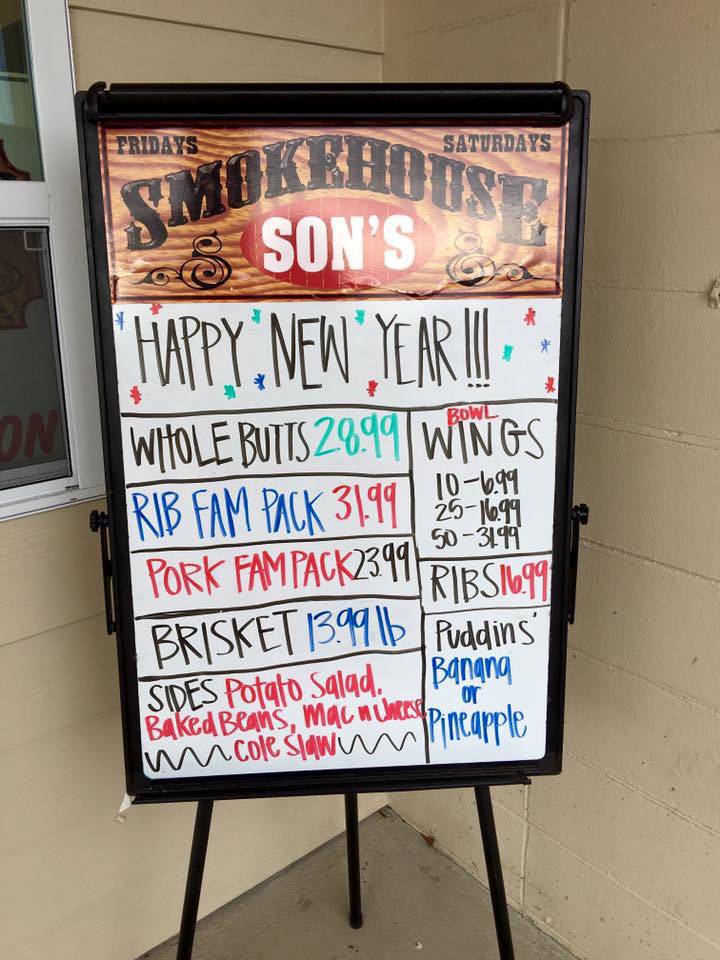 FRIDAYS SATURDAYS
SMOKEHOUSE
SON'S
HAPPY NEW YEAR!!!
WHOLE BUTTS 28.99
RIB FAM PACK 31.99
PORK FAM PACK 23.99
BRISKET 13.99 lb
SIDES Potato Salad,
Baked Beans, Mac n Cheese
Cole Slaw
BOWL
WINGS
10-6.99
25-16.99
50-31.99
RIBS 16.99
Puddins'
Banana
or
Pineapple
ON